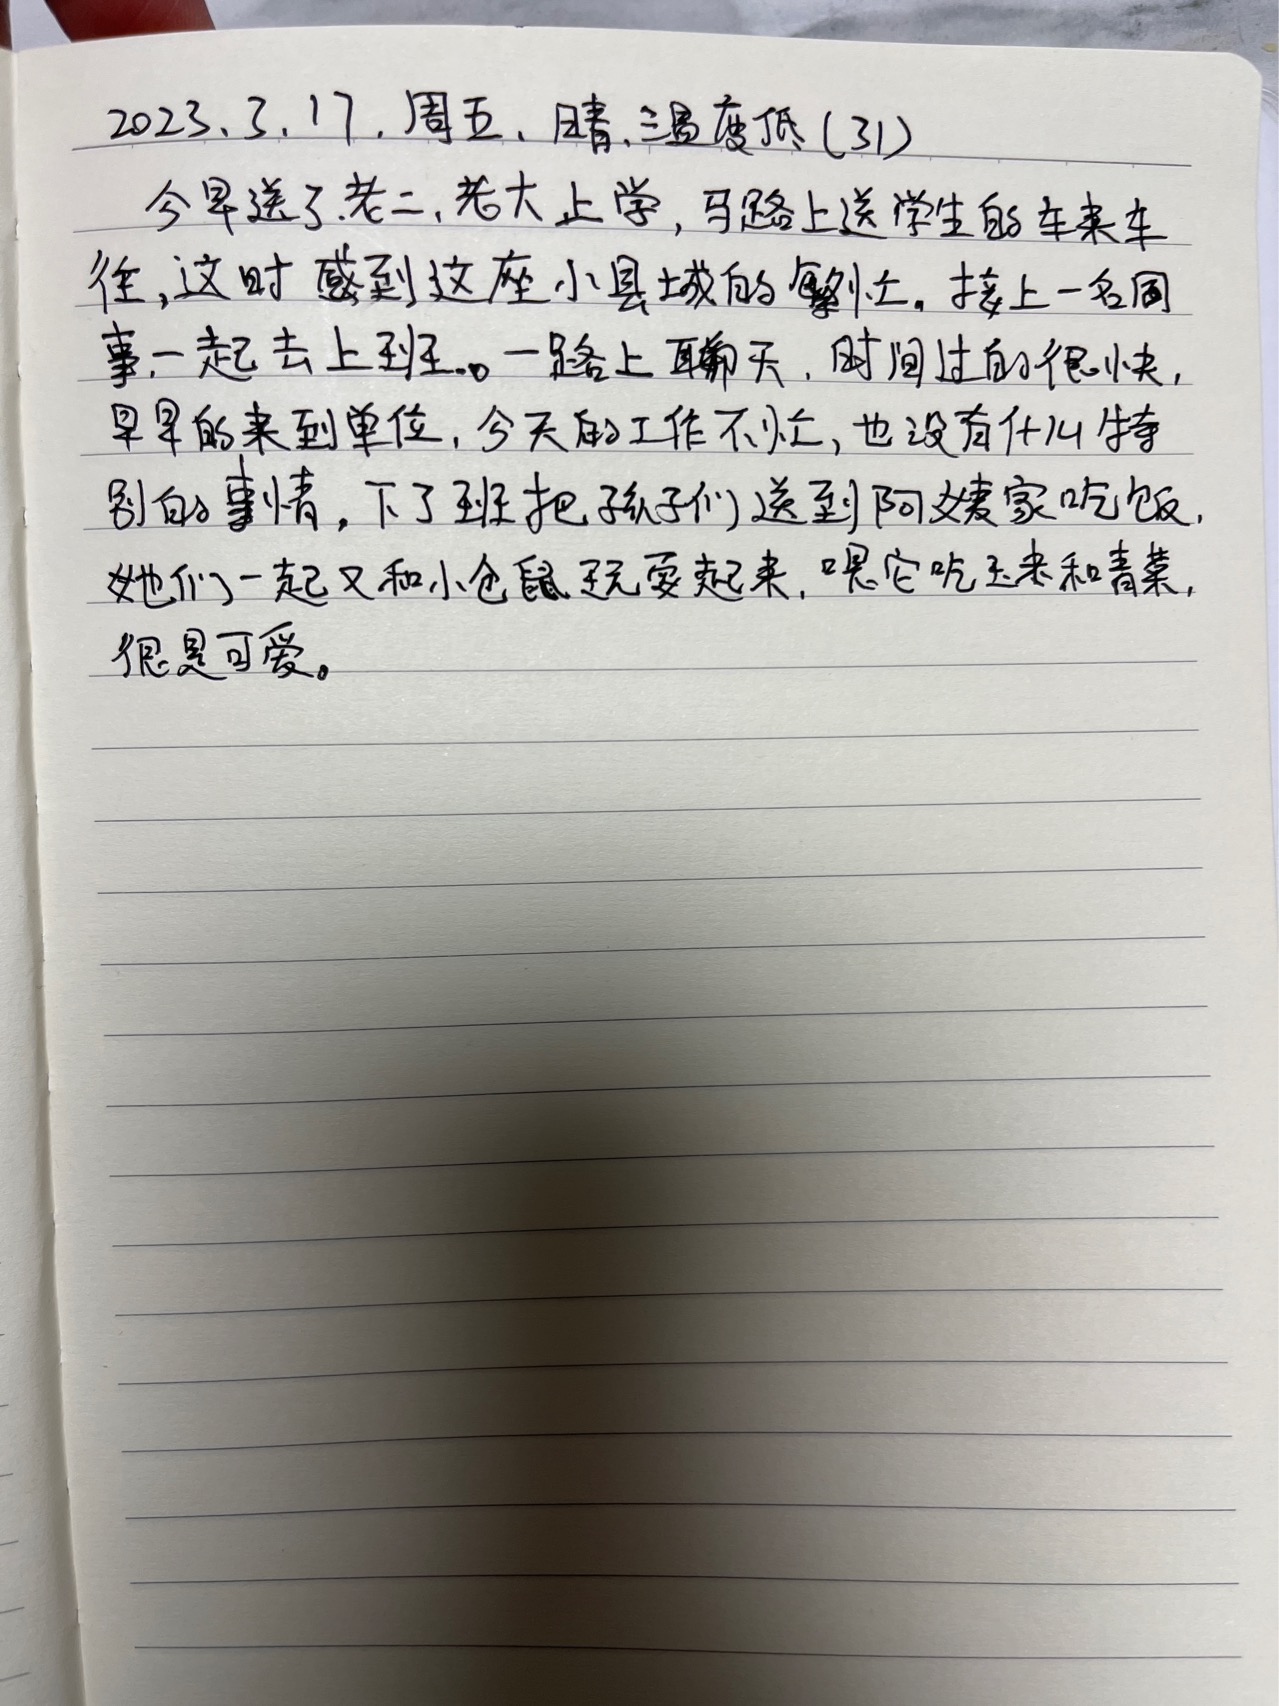 2023.3.17.周五.晴.温度低(31)
今早送了老二,老大上学,马路上送学生的车来车
往,这时感到这座小县城的繁忙。接上一名同
事.一起去上班..。一路上聊天.时间过的很快,
早早的来到单位.今天的工作不忙,也没有什么特
别的事情,下了班把孩子们送到阿姨家吃饭.
她们一起又和小仓鼠玩耍起来.喂它吃玉米和青菜,
很是可爱。